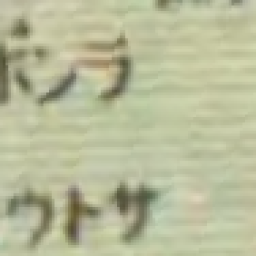 ボンラ
ウトサ